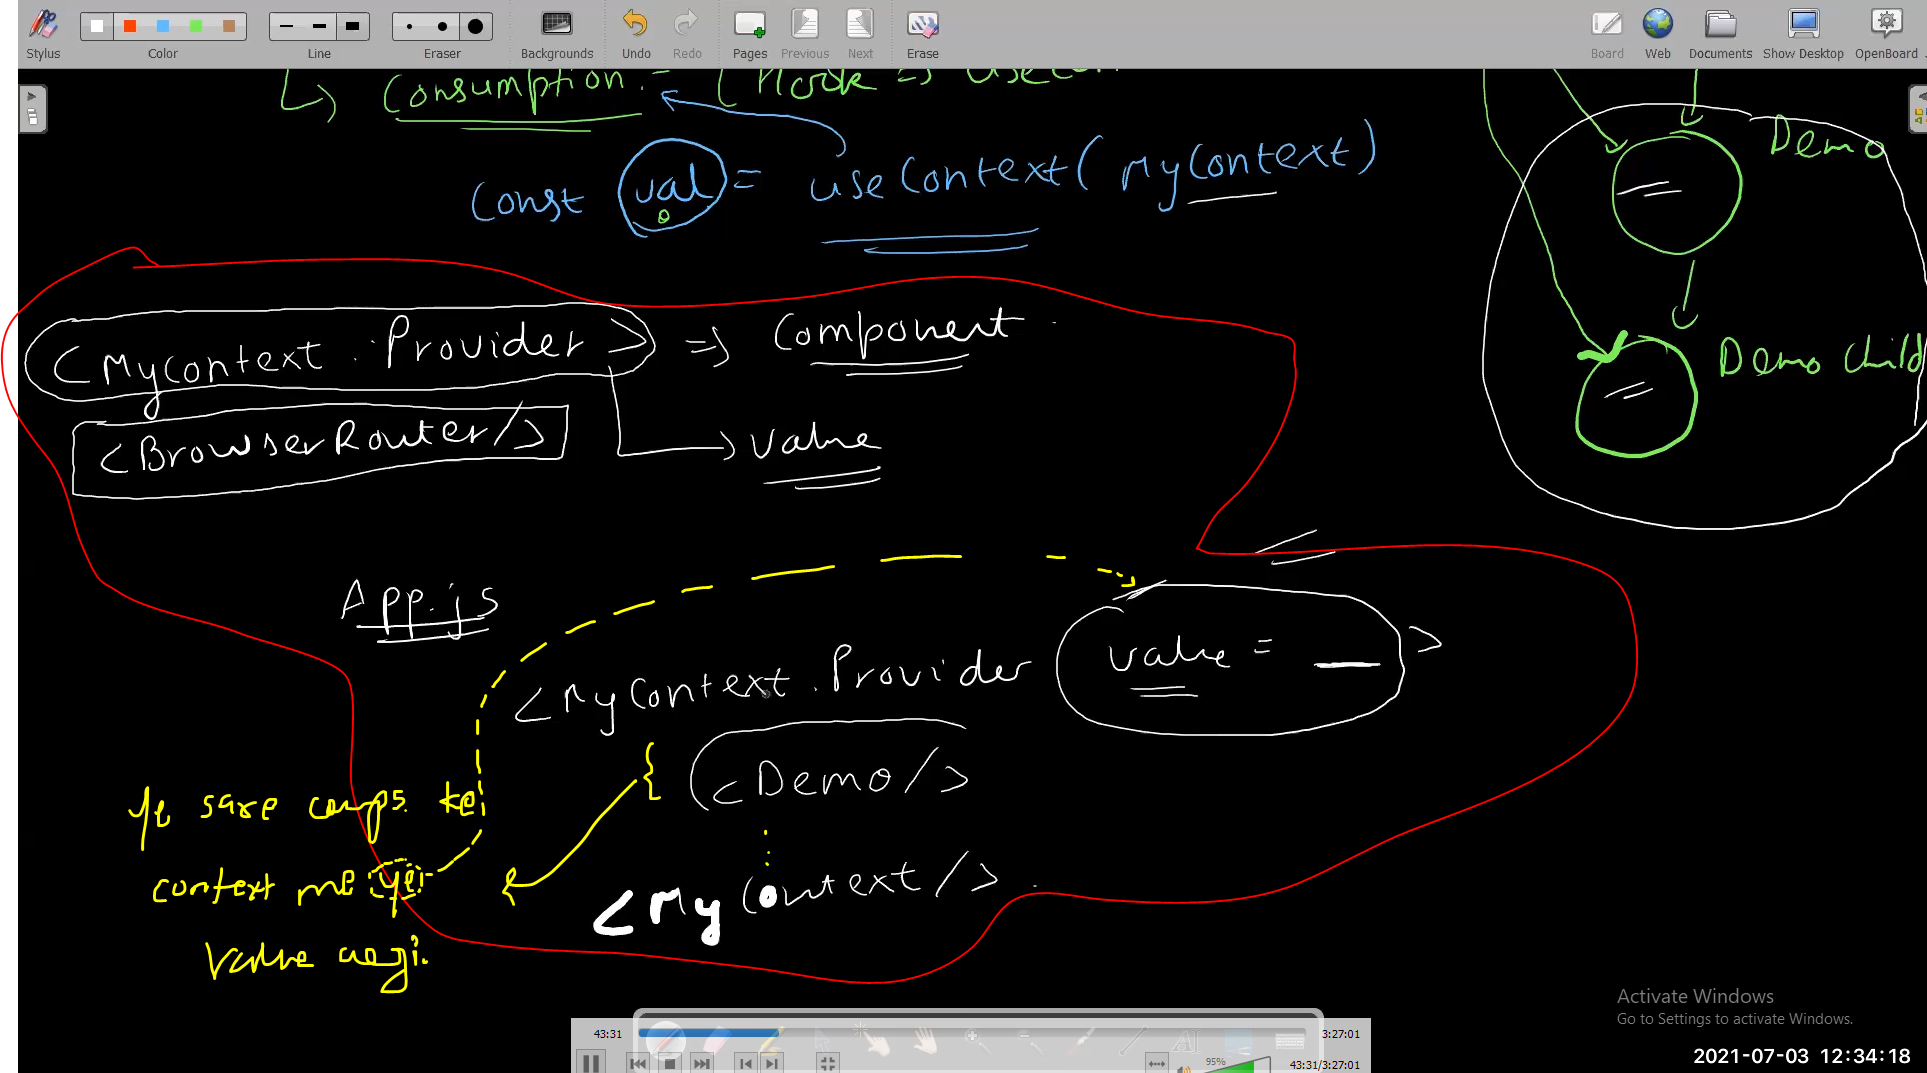 Stylus
Color
Line
Eraser
Backgrounds
Undo
Redo
Pages
Previous
Next
Erase
Board
Web
Documents
Show Desktop
OpenBoard
Consumption :- (Hook =>
const val = useContext(MyContext)
Demo
<Mycontext.Provider> => Component.
Demo Child
<BrowserRouter/>
value
App.js
<MyContext.Provider value = __ >
{ <Demo/>
ye sare comps. ke
context me ye
<MyContext/>.
value aegi.
Activate Windows
Go to Settings to activate Windows.
43:31
3:27:01
95%
43:31/3:27:01
2021-07-03 12:34:18